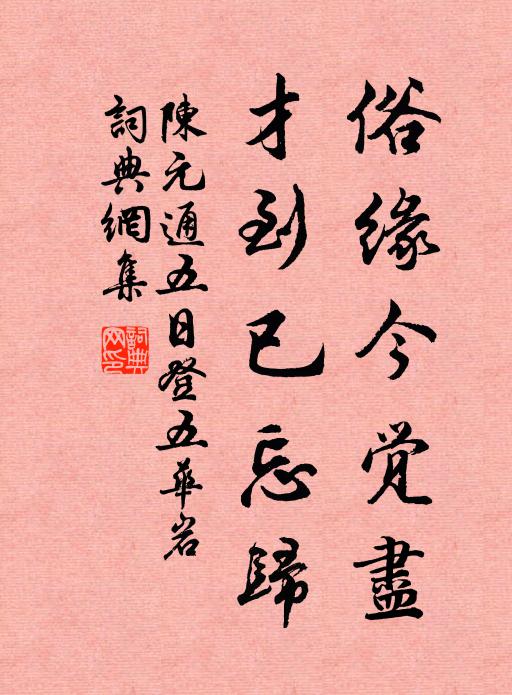 俗緣今覺盡
才到已忘歸
陳元通五日登五華岩
詞典網集
詞典网印